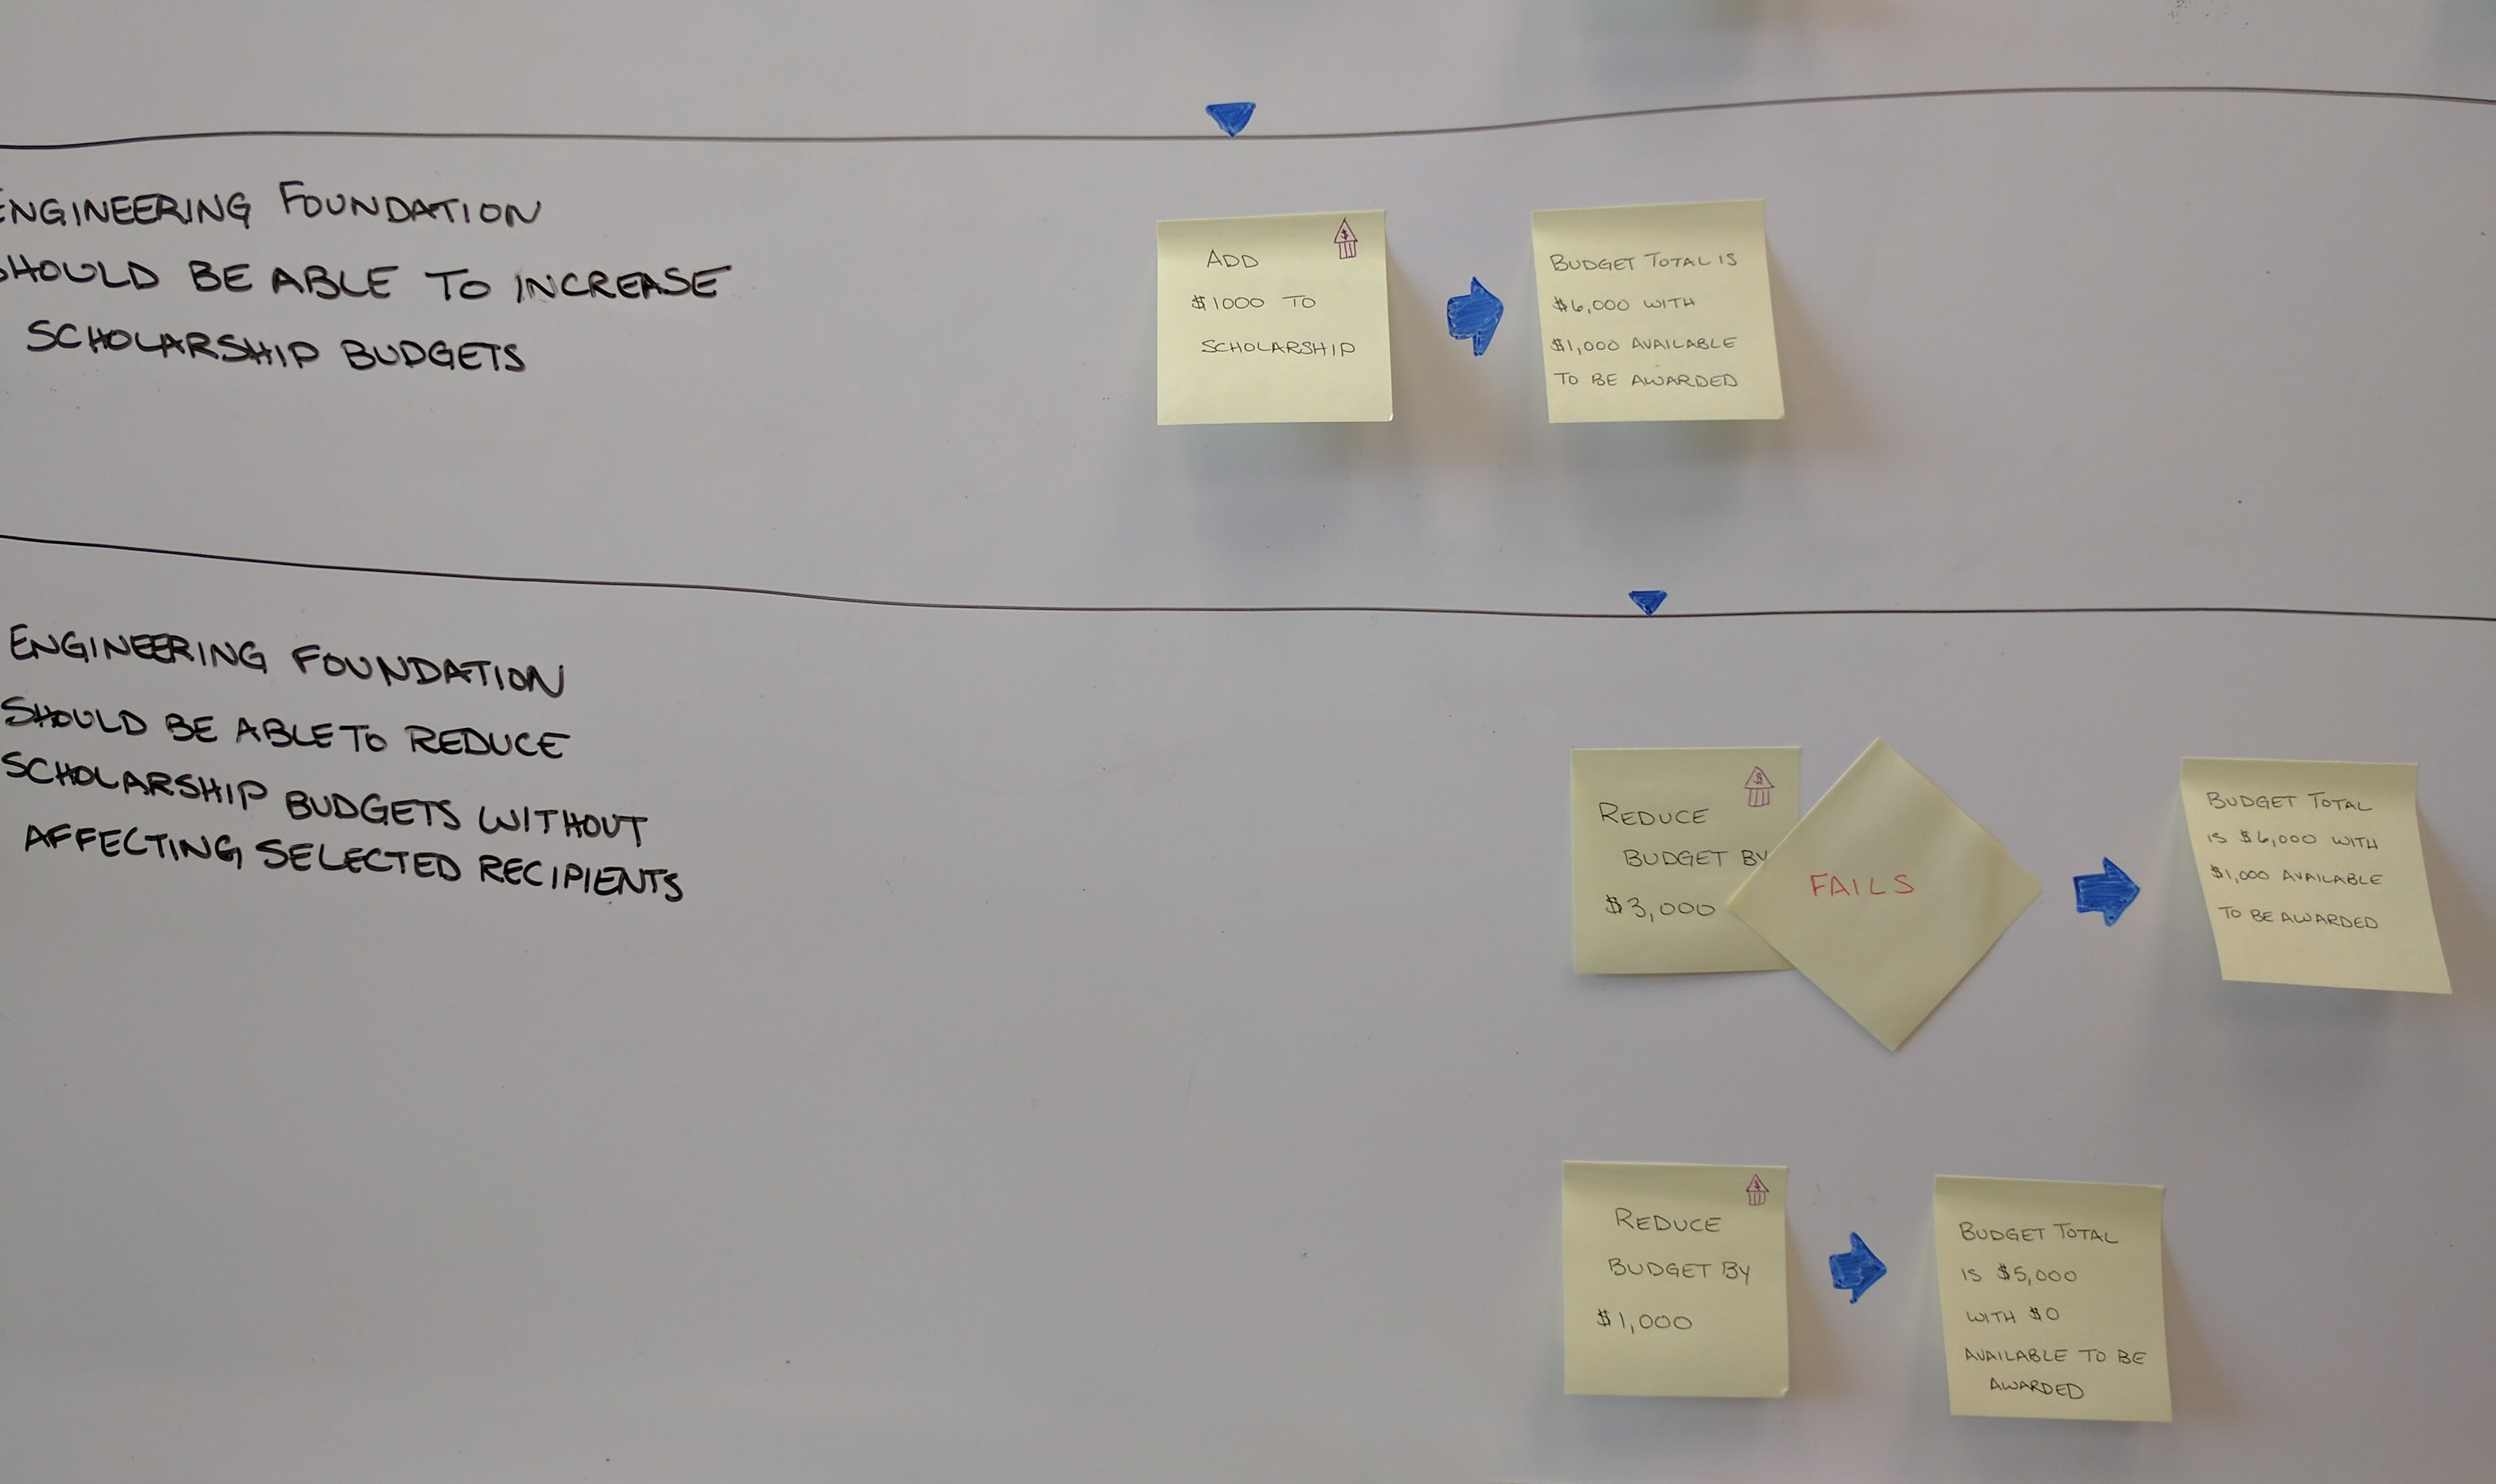 ENGINEERING FOUNDATION
SHOULD BE ABLE TO INCREASE
SCHOLARSHIP BUDGETS
ADD
$1000 TO
SCHOLARSHIP
$
BUDGET TOTAL IS
$6,000 WITH
$1,000 AVAILABLE
TO BE AWARDED
ENGINEERING FOUNDATION
SHOULD BE ABLE TO REDUCE
SCHOLARSHIP BUDGETS WITHOUT
AFFECTING SELECTED RECIPIENTS
$
REDUCE
BUDGET BY
$3,000
FAILS
BUDGET TOTAL
IS $6,000 WITH
$1,000 AVAILABLE
TO BE AWARDED
$
REDUCE
BUDGET BY
$1,000
BUDGET TOTAL
IS $5,000
WITH $0
AVAILABLE TO BE
AWARDED